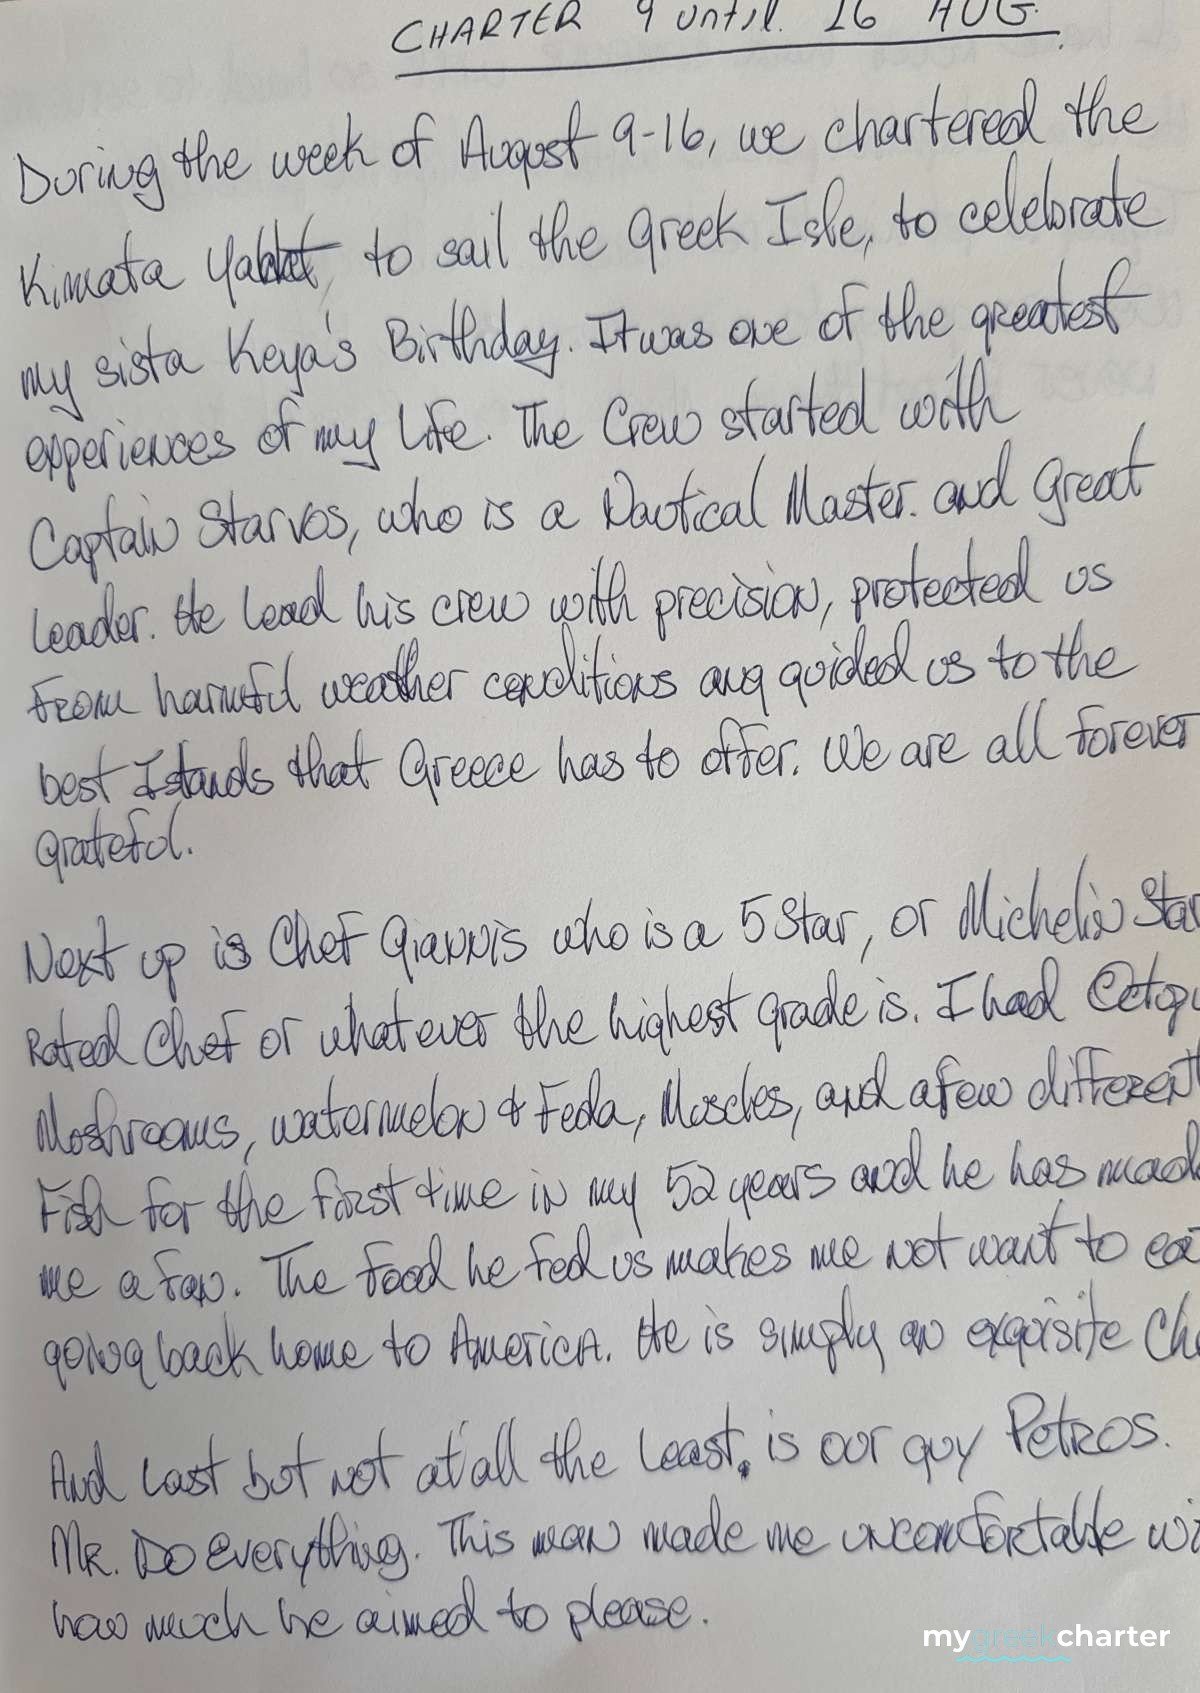 CHARTER 9 until 16 AUG.
During the week of August 9-16, we chartered the
Kimata Yahkt, to sail the Greek Isle, to celebrate
my sista Keya's Birthday. It was one of the greatest
experiences of my life. The Crew started with
Captain Starvos, who is a Nautical Master. and Great
leader. He lead his crew with precision, protected us
from harmful weather conditions ang guided us to the
best Islands that Greece has to offer. We are all forever
grateful.
Next up is Chef Giannis who is a 5 Star, or Michelin Star
Rated Chef or whatever the highest grade is. I had Octopu
Mushrooms, watermelon & Feda, Muscles, and a few different
Fish for the first time in my 52 years and he has mad
me a fan. The food he fed us makes me not want to eat
going back home to America. He is simply an exquisite Che
And last but not at all the least. is our guy Petros.
Mr. Do Everything. This man made me uncomfortable wi
how much he aimed to please.
mygreekcharter